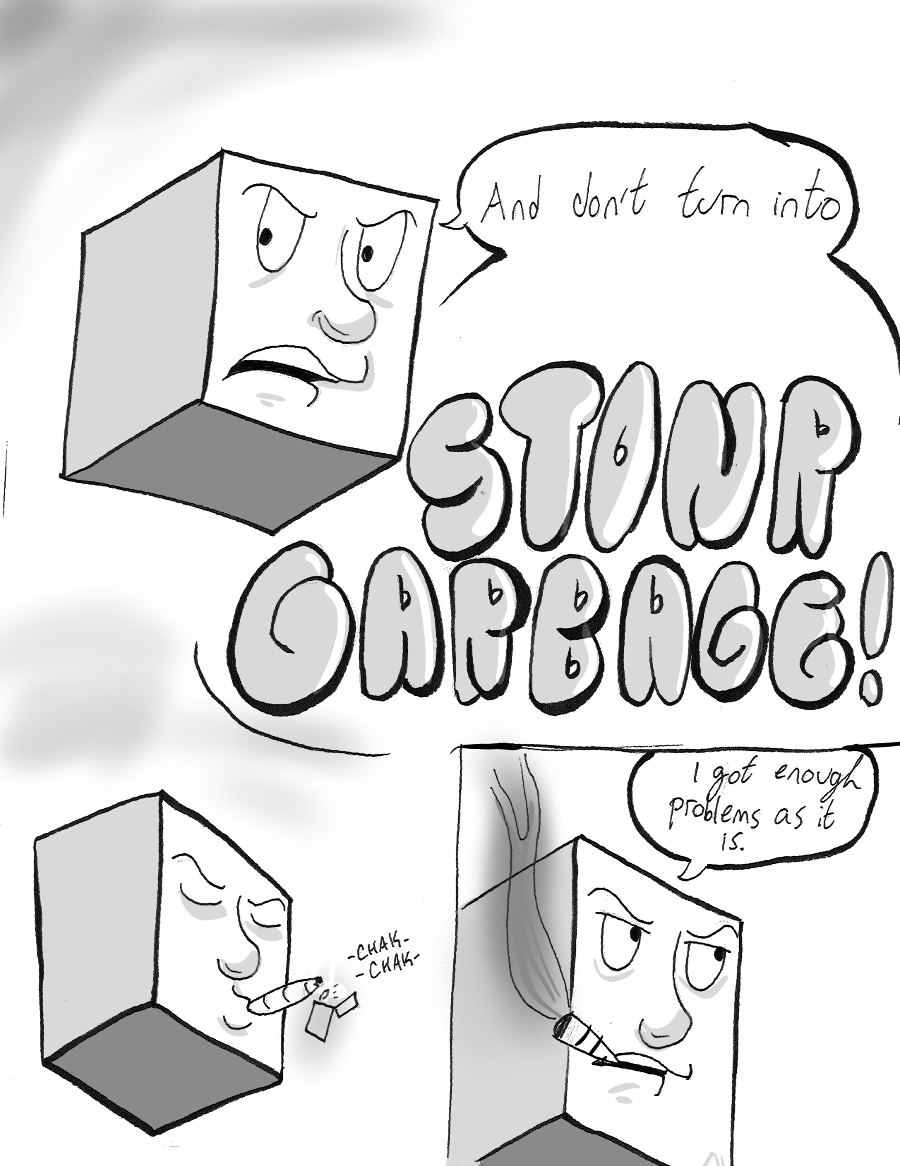 And don't turn into
STONR
GARBAGE!
-CHAK-
-CHAK-
I got enough
problems as it
is.